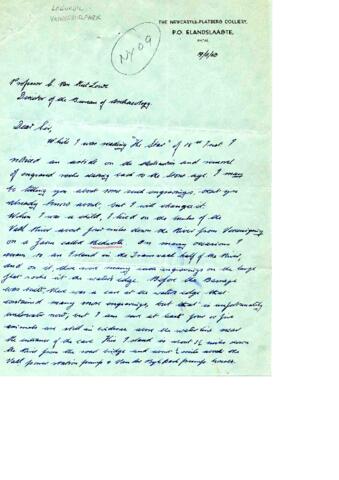 THE NEWCASTLE-PLATBERG COLLIERY,
P.O. ELANDSLAAGTE,
NATAL
NX 09
Professor C. Van Riet Lowe
Director of the Bureau of Archaeology.
Dear Sir,
While I was reading "The Star" of 15th Inst I
noticed an article on the destruction and removal
of engraved rocks dating back to the stone age. I may
be telling you about some rock engravings, that you
already know about, but I will chance it.
When I was a child, I lived on the banks of the
Vaal River about five miles down the River from Vereeniging
on a farm called On many occasions I
swam to an Island in the Transvaal half of the River,
and on it, there were many rock engravings on the large
flat rocks at the waters edge. Before the Barrage
was built, there was a cave at the waters edge that
contained many more engravings, but that is unfortunately
underwater now, but I am sure at least four or five
animals are still in evidence above the water line near
the entrance of the cave. This Island is about 1½ miles down
the River from the road bridge and about ½ mile above the
Vaal power station pumps & Van der Bijl Park pumps house.